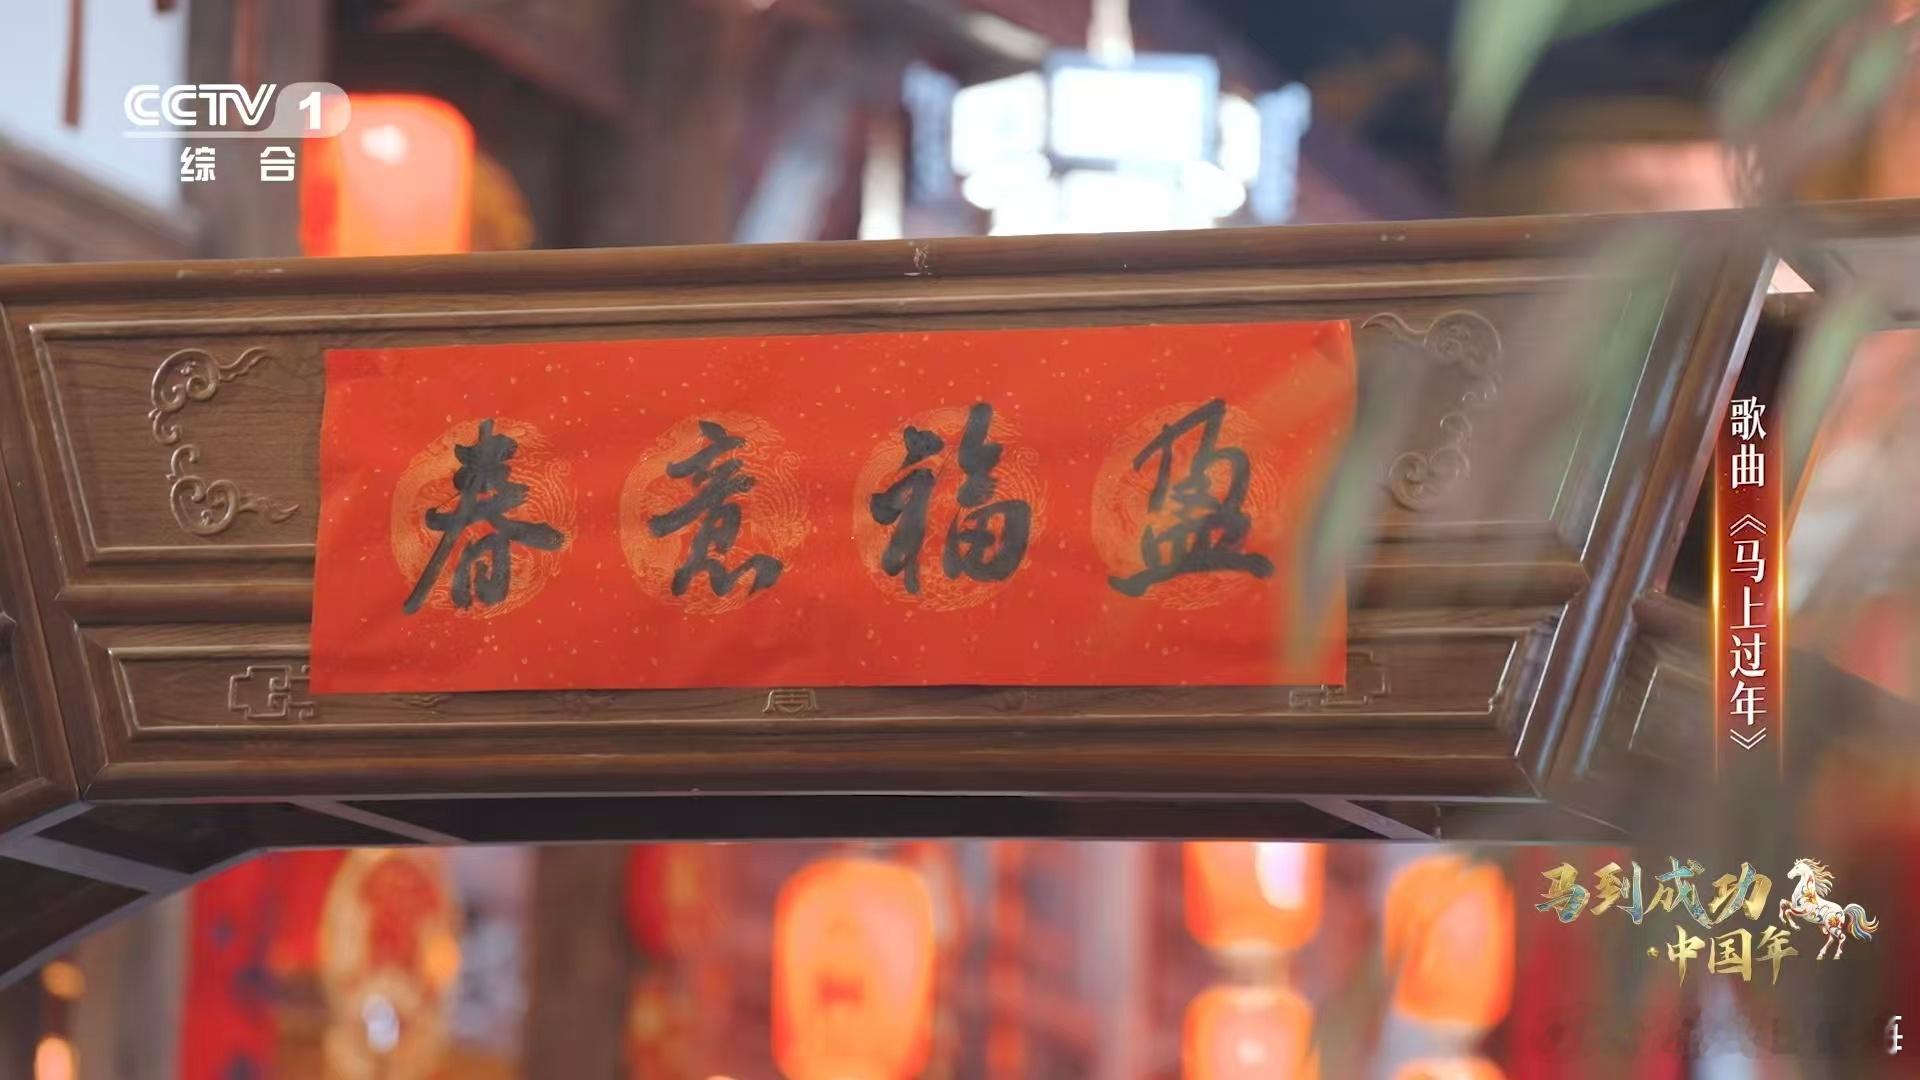 CCTV 1
综 合
春意福盈
歌曲《马上过年》
马到成功
·中国年